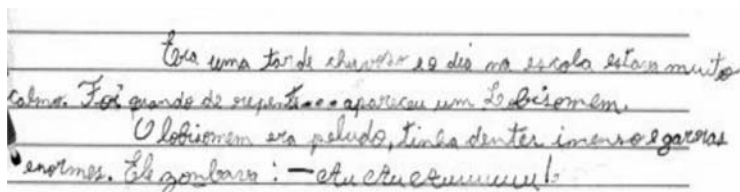 Era uma tarde chuvoso e o dia na escola estava muito
calmo. Foi quando de repente... apareceu um Lobisomem.
O lobisomem era peludo, tinha dentes imenso e garras
enormes. Ele zombava: - Au Au Auuuuuuu!